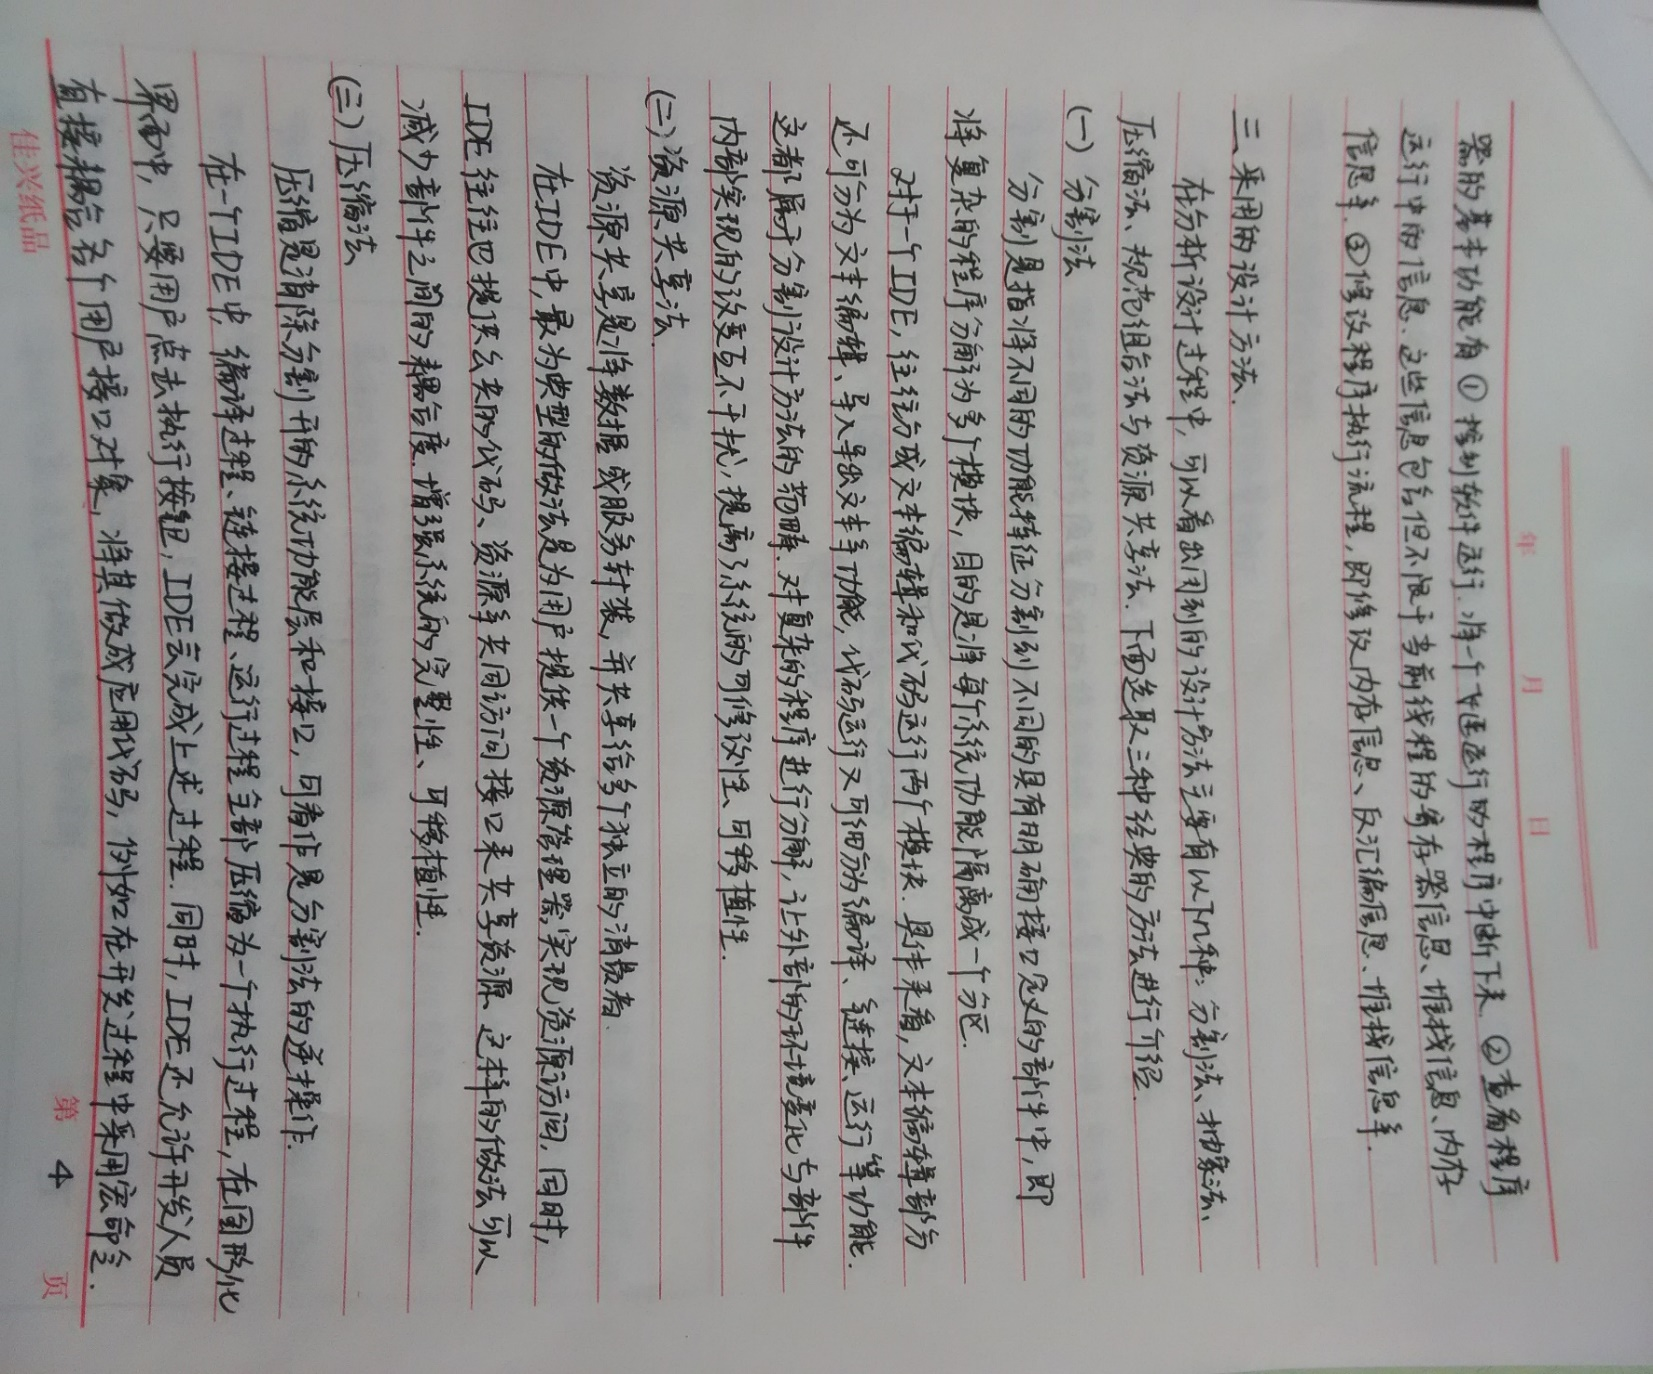 年 月 日
器的基本功能有 ① 控制软件运行.将一个在运行的程序中断下来. ②查看程序
运行中的信息.这些信息包含但不限于当前线程的寄存器信息、堆栈信息、内存
信息等.③修改程序执行流程,即修改内存信息、反汇编信息、堆栈信息等.
三、采用的设计方法.
在分析设计过程中,可以看出用到的设计方法主要有以下几种:分割法、抽象法、
压缩法、规范组合法与资源共享法.下面选取三种经典的方法进行介绍.
(一)分割法
分割是指将不同的功能特征分割到不同的具有明确接口定义的部件中,即
将复杂的程序分解为多个模块,目的是将每个系统功能隔离成一个分区.
对于一个IDE,往往分成文本编辑和代码运行两个模块.具体来看,文本编辑部分
还可分为文本编辑、导入导出文本等功能,代码运行又可细分为编译、链接、运行等功能.
这都属于分割设计方法的范畴.对复杂的程序进行分解,让外部的环境变化与部件
内部实现的改变互不干扰,提高了系统的可修改性、可移植性.
(二)资源共享法.
资源共享是将数据或服务封装,并共享给多个独立的消费者.
在IDE中,最为典型的做法是为用户提供一个资源管理器,实现资源访问,同时,
IDE往往也提供公共的代码、资源等共同访问接口来共享资源.这样的做法可以
减少部件之间的耦合度.增强系统的完整性、可移植性.
(三)压缩法
压缩是消除分割开的系统功能层和接口,可看作是分割法的逆操作.
在一个IDE中,编译过程、链接过程、运行过程全部压缩为一个执行过程,在图形化
界面中,只要用户点击执行按钮,IDE会完成上述过程.同时,IDE还允许开发人员
直接耦合各个用户接口对象,将其做成应用代码,例如在开发过程中采用宏命令.
第 4 页
佳兴纸品